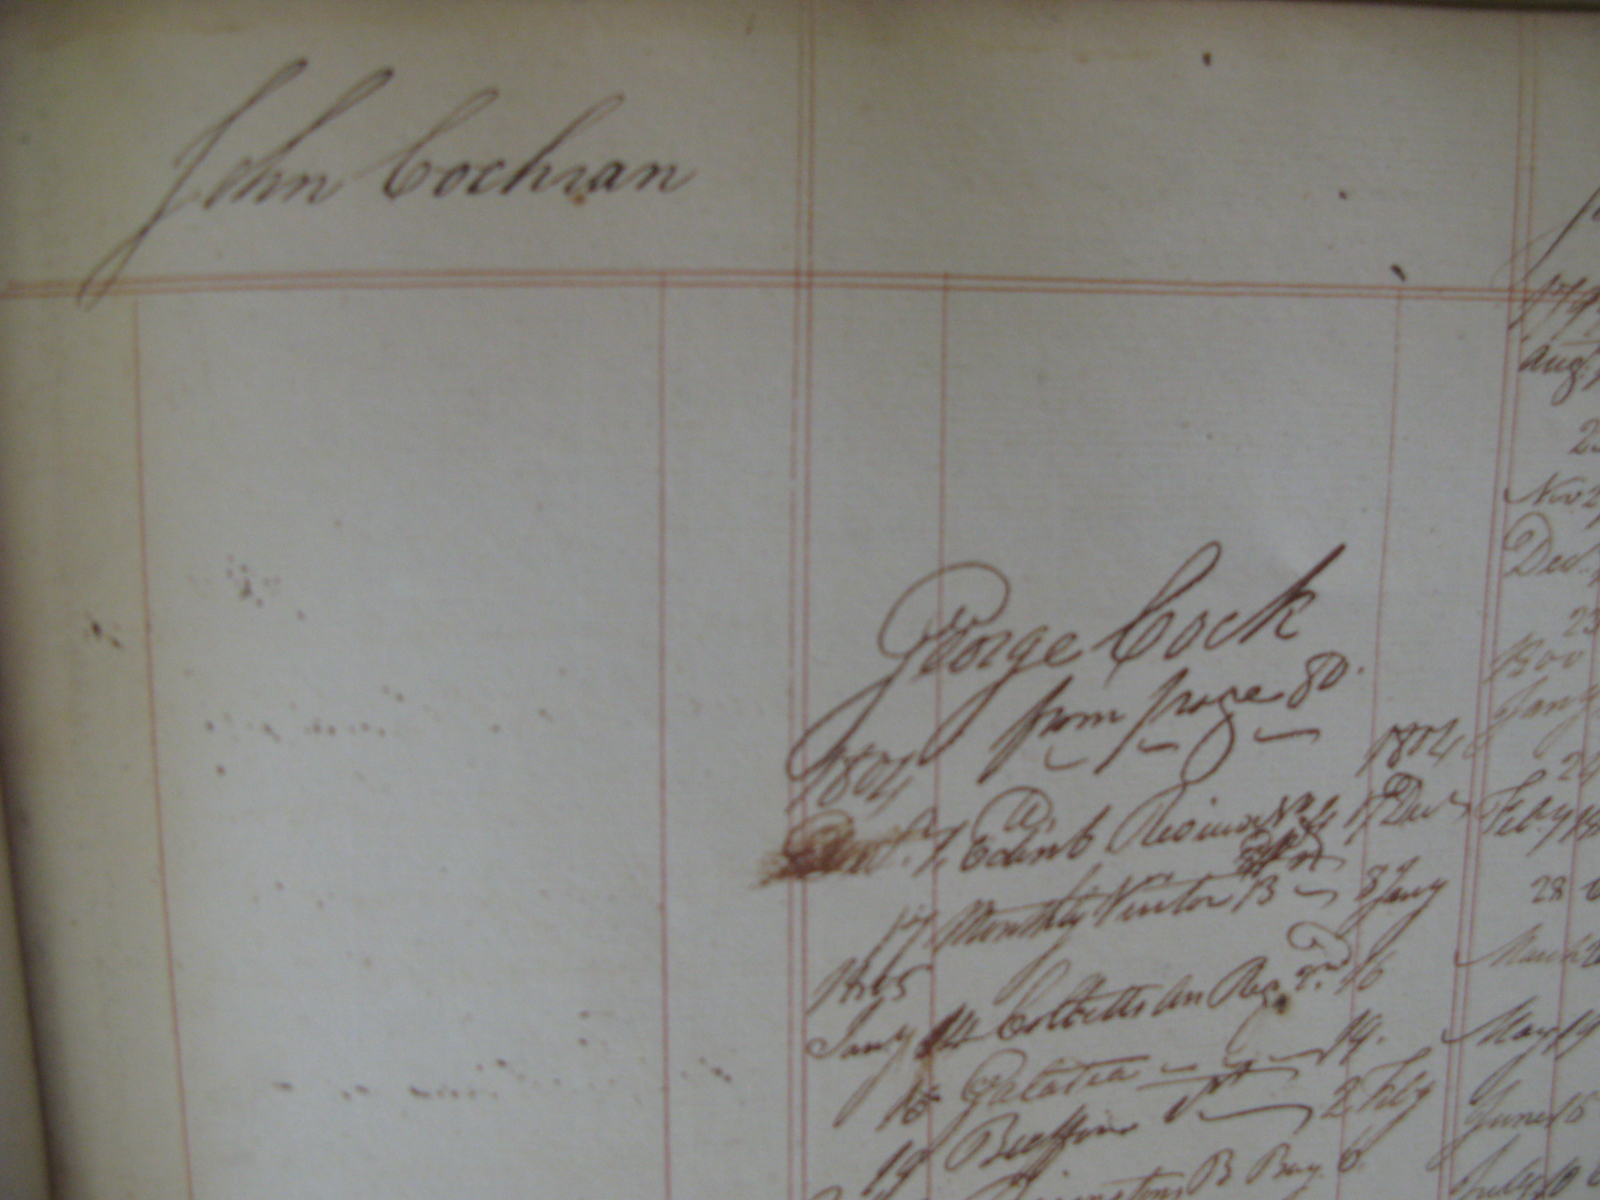 John Cochran
George Cock
from page 80.
1804 1804
7 Edinb Review No. 4 17 Dec
17 Monthly Visitor B 8 Jany
1805
Jany 14 Cobbetts An Reg. 2nd 16
16 Galatea 19.
19 2 Feby
B Bay. 6.
Aug.
Nov 2
Dec.
23
Jany
24
Feby 14
28
March 2
May 19
June 16
July 10